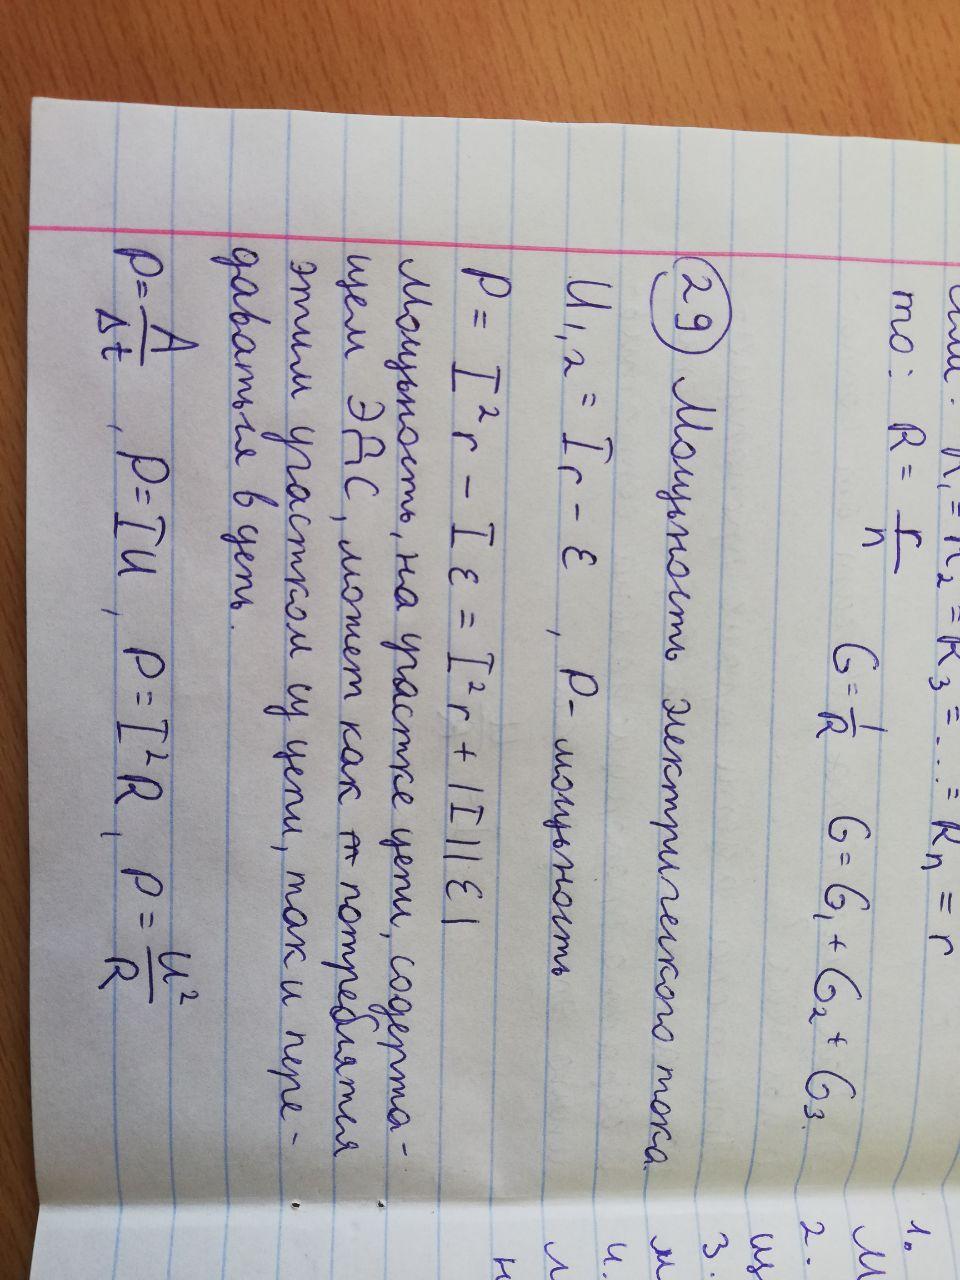 если: R₁ = R₂ = R₃ = ... = Rₙ = r
то: R = r/n
G = 1/R G = G₁ + G₂ + G₃.
29 Мощьность электрического тока.
U₁,₂ = Ir - ε , P - мощьность
P = I²r - Iε = I²r + |I||ε|
Мощьность, на участке цепи, содержа-
щем ЭДС, может как потреблятся
этим участком из цепи, так и пере-
даваться в цепь.
P = A/Δt , P = IU , P = I²R , P = U²/R
1.
М
2.
из
3.
м
4.
н